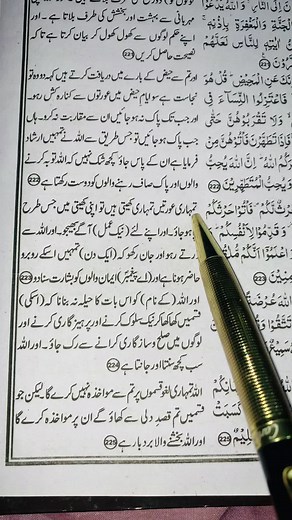 مہربانی سے بہشت اور بخشش کی طرف بلاتا ہے۔ اور
اپنے حکم لوگوں سے کھول کھول کر بیان کرتا ہے تاکہ
نصیحت حاصل کریں 221
اور تم سے حیض کے بارے میں دریافت کرتے ہیں کہہ دو وہ تو
نجاست ہے سو ایام حیض میں عورتوں سے کنارہ کش رہو۔
اور جب تک پاک نہ ہو جائیں ان سے مقاربت نہ کرو۔ ہاں
جب پاک ہو جائیں تو جس طریق سے اللہ نے تمہیں ارشاد
فرمایا ہے ان کے پاس جاؤ کچھ شک نہیں کہ اللہ توبہ کرنے
والوں اور پاک صاف رہنے والوں کو دوست رکھتا ہے 222
تمہاری عورتیں تمہاری کھیتی ہیں تو اپنی کھیتی میں جس طرح
ہو جاؤ۔ اور اپنے لئے (نیک عمل) آگے بھیجو۔ اور اللہ سے
رتے رہو اور جان رکھو کہ (ایک دن) تمہیں اسکے روبرو
حاضر ہونا ہے اور (اے پیغمبر) ایمان والوں کو بشارت سنا دو 223
اور اللہ (کے نام) کو اس بات کا حیلہ نہ بنانا کہ (اسکی)
قسمیں کھا کھا کر نیک سلوک کرنے اور پرہیزگاری کرنے اور
لوگوں میں صلح و سازگاری کرانے سے رک جاؤ۔ اور اللہ
سب کچھ سنتا اور جانتا ہے 224
اللہ تمہاری لغو قسموں پر تم سے مواخذہ نہیں کرے گا لیکن جو
قسمیں تم قصد دلی سے کھاؤ گے ان پر مواخذہ کرے گا
اور اللہ بخشنے والا بردبار ہے 225
الْجَنَّةِ وَالْمَغْفِرَةِ بِإِذْنِهِ ۚ
لِلنَّاسِ لَعَلَّهُمْ
عَنِ الْمَحِيضِ ۖ قُلْ هُوَ
فَاعْتَزِلُوا النِّسَاءَ فِي
وَلَا تَقْرَبُوهُنَّ حَتَّىٰ
فَإِذَا تَطَهَّرْنَ فَأْتُوهُنَّ مِنْ
اللَّهُ ۚ إِنَّ اللَّهَ يُحِبُّ
وَيُحِبُّ الْمُتَطَهِّرِينَ 222
فَأْتُوا حَرْثَكُمْ
وَقَدِّمُوا لِأَنْفُسِكُمْ ۚ
وَاعْلَمُوا أَنَّكُمْ